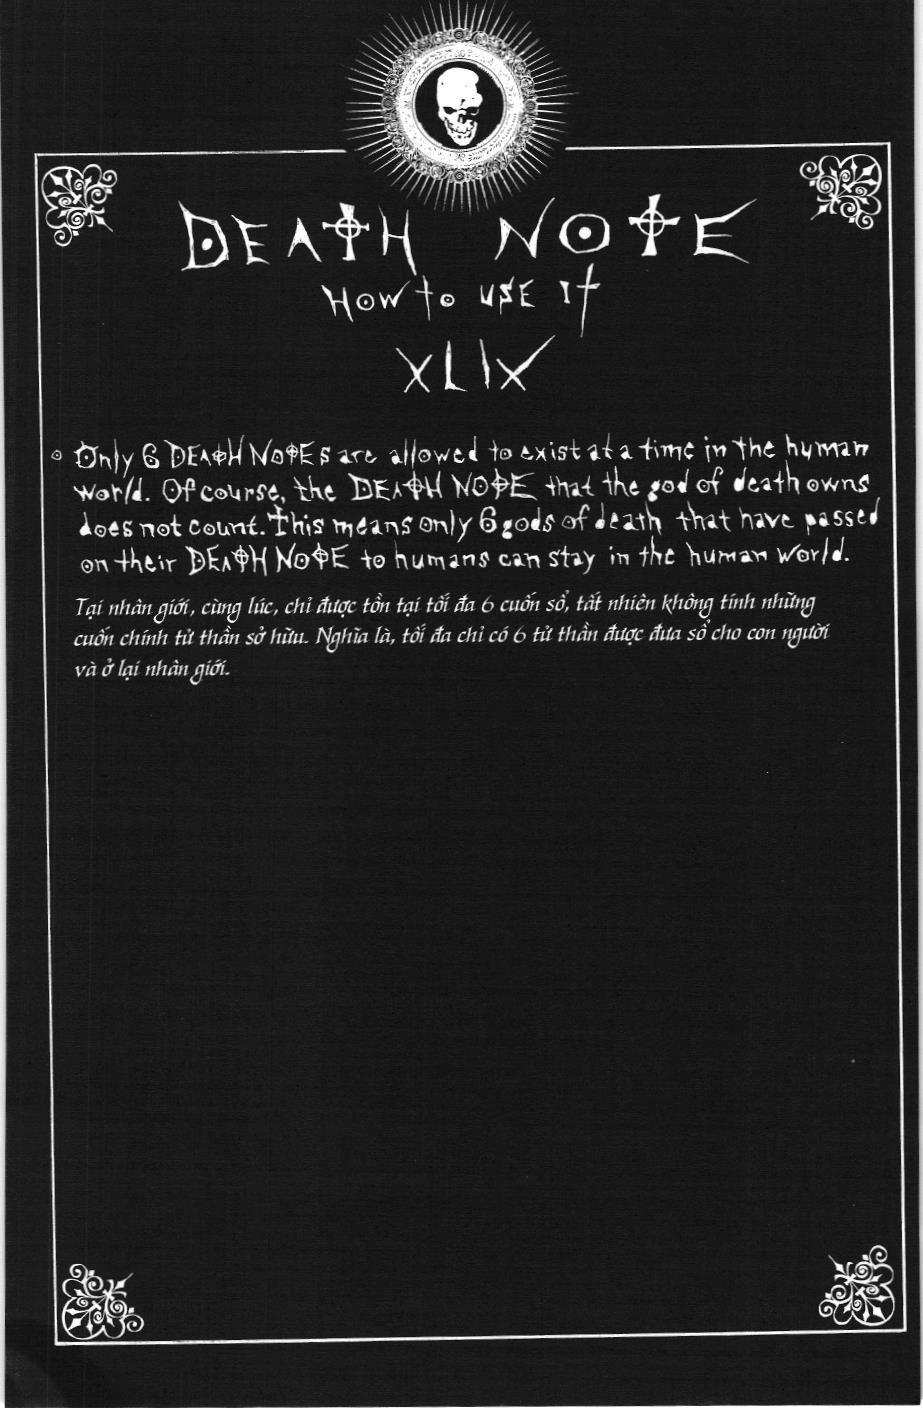 DEATH NOTE
How to use it
XLIX
Only 6 DEATH NOTEs are allowed to exist at a time in the human
world. Of course, the DEATH NOTE that the god of death owns
does not count. This means only 6 gods of death that have passed
on their DEATH NOTE to humans can stay in the human world.
Tại nhân giới, cùng lúc, chỉ được tồn tại tối đa 6 cuốn sổ, tất nhiên không tính những
cuốn chính tử thần sở hữu. Nghĩa là, tối đa chỉ có 6 tử thần được đưa sổ cho con người
và ở lại nhân giới.